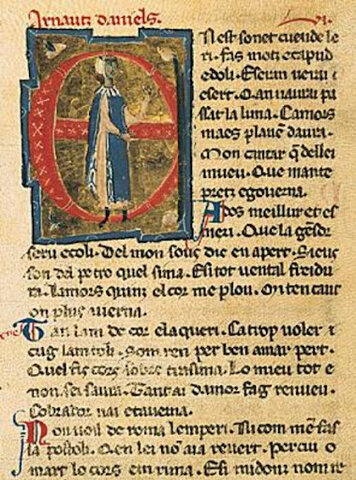 Arnautz daniels.
N est sonet cuende le
ri. fas motz ecapud
edoli. Eseran verai e
cert. Qan naurai pa
ssat la luna. Camors
maes plan e daura.
Mon cantar q de llei
mueu. Que mante
pretz egoverna.
A des meillur et es
meri. Que la gesor
seru ecoli. Del mon sous die en apert. Sieus
son del pe tro quel sima. E si tot vental freidu
ra. Lamors quinz el cor me plou. On ten caut
on plus iuerna.
T an lam de cor e la queri. Catrop voler
cug lam toli. Som ren per ben amar pert.
Quel sieu cors sobre tersima. Lo mieu tot e
non sei saura. Tant ai damor fag renueu.
Cobrador nai etauerna.
N on voil de roma lemperi. Ni com me fas
la postoli. Qen lei no aia revert. Per cui o
mart lo cors em rima. E si midonz nom re